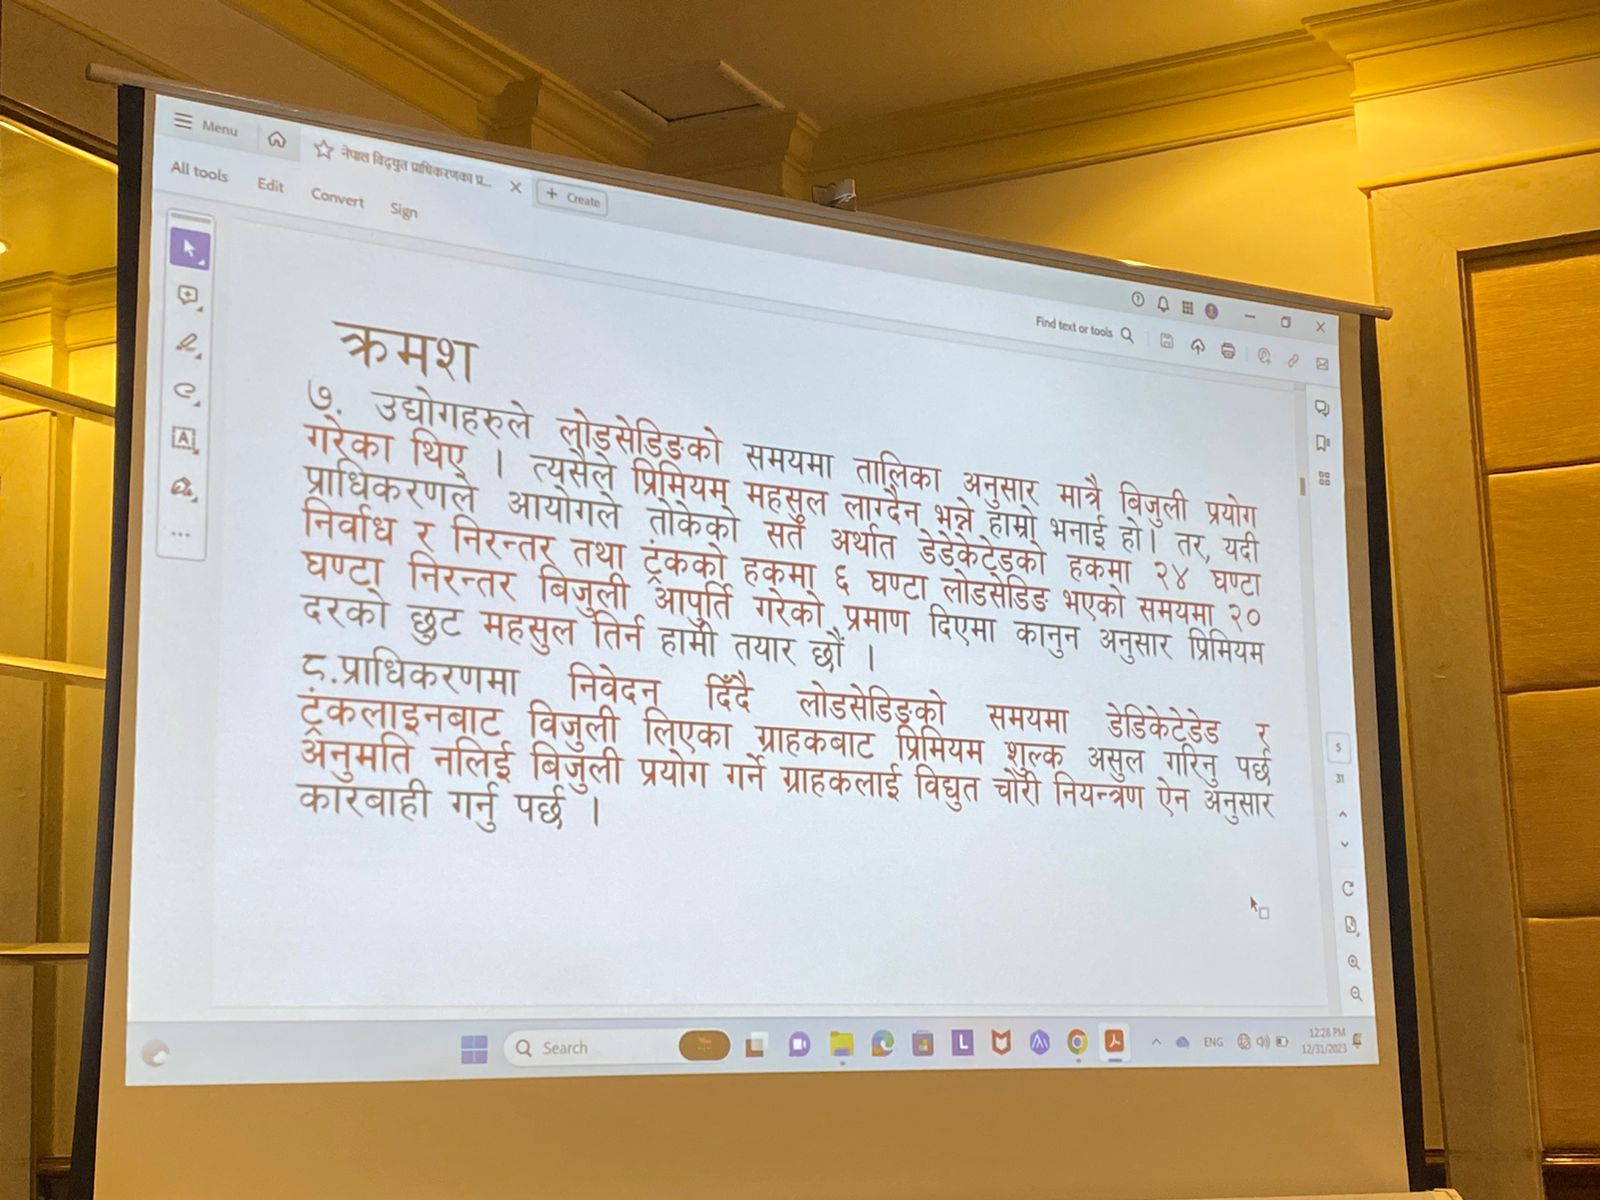 Menu
नेपाल विद्युत प्राधिकरणका प्र...
Create
All tools
Edit
Convert
Sign
Find text or tools
क्रमश
७. उद्योगहरुले लोडसेडिङको समयमा तालिका अनुसार मात्रै बिजुली प्रयोग
गरेका थिए । त्यसैले प्रिमियम महसुल लाग्दैन भन्ने हाम्रो भनाई हो। तर, यदी
प्राधिकरणले आयोगले तोकेको सर्त अर्थात डेडेकेटेडको हकमा २४ घण्टा
निर्वाध र निरन्तर तथा ट्रंकको हकमा ६ घण्टा लोडसेडिङ भएको समयमा २०
घण्टा निरन्तर बिजुली आपुर्ति गरेको प्रमाण दिएमा कानुन अनुसार प्रिमियम
दरको छुट महसुल तिर्न हामी तयार छौं ।
८.प्राधिकरणमा निवेदन दिँदै लोडसेडिङको समयमा डेडिकेटेडेड र
ट्रंकलाइनबाट विजुली लिएका ग्राहकबाट प्रिमियम शुल्क असुल गरिनु पर्छ
अनुमति नलिई बिजुली प्रयोग गर्ने ग्राहकलाई विद्युत चोरी नियन्त्रण ऐन अनुसार
कारबाही गर्नु पर्छ ।
5
31
Search
ENG
12:28 PM
12/31/2023